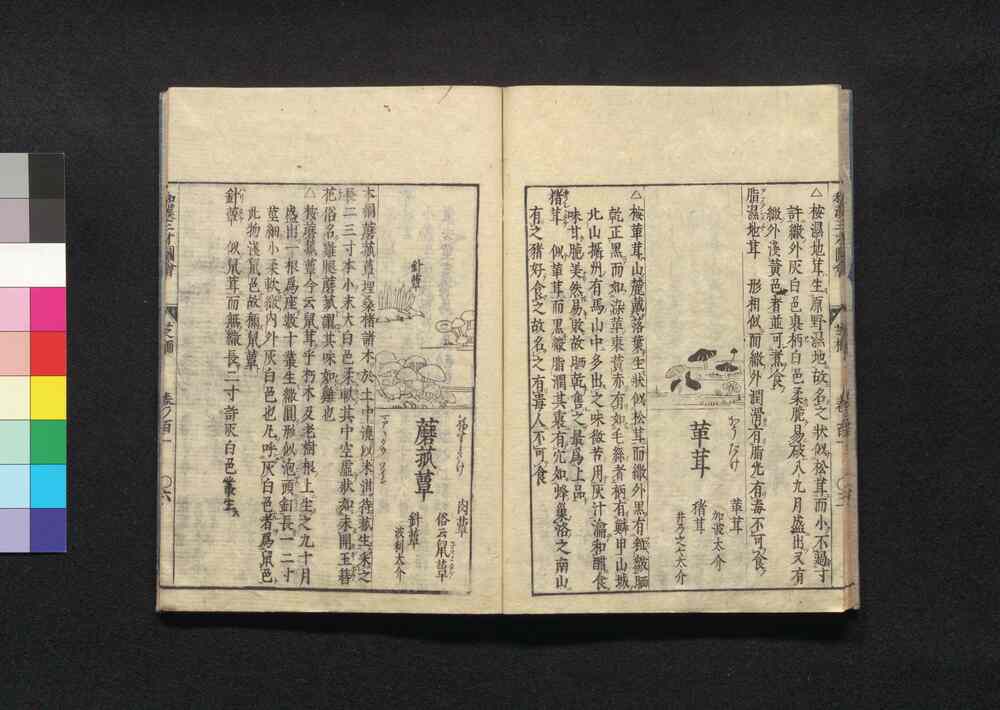 △桉濕地茸生原野濕地故名之狀似松茸而小不過寸
許繖外灰白色裏柄白色柔脆易破八九月盛出又有
繖外淺黃色者並可煮食
脂濕地茸　形相似而繖外潤滑有脂光有毒不可食
かうたけ
茸茸
革茸
加波太介
猪茸
井乃之太介
△桉革茸山麓戴落葉生狀似松茸而繖外黒有
乾正黒而如染革裏黄赤有如毛絲者柄有鱗甲山城
北山攝州有馬山中多出之味微苦用灰汁瀹和醋食
味甘脆美然易敗故晒乾售之最爲上品
猪茸　似革茸而黒繖脂潤其裏有穴如蜂巢洛之南山
有之猪好食之故名之有毒人不可食
和漢三才圖會
芝栭
卷ノ百一
〇六
針蕈
蘑菰蕈
肉蕈
俗云鼠蕈
針蕈
波利太介
本綱蘑菰蕈埋桑楮諸木於土中澆以米泔待菰生采之
長二三寸本小末大白色柔軟其中空虛狀如未開玉簪
花俗名雞腿蘑菰謂其味如雞也
△桉蘑菰蕈今云鼠茸乎朽木及老樹根上生之九十月
盛出一根爲座數十叢生繖圓形似泡頭釘長一二寸
莖細小柔軟繖内外灰白色也凡呼灰白色者爲鼠色
此物淺鼠色故稱鼠蕈
針蕈　似鼠茸而無繖長二寸許灰白色叢生